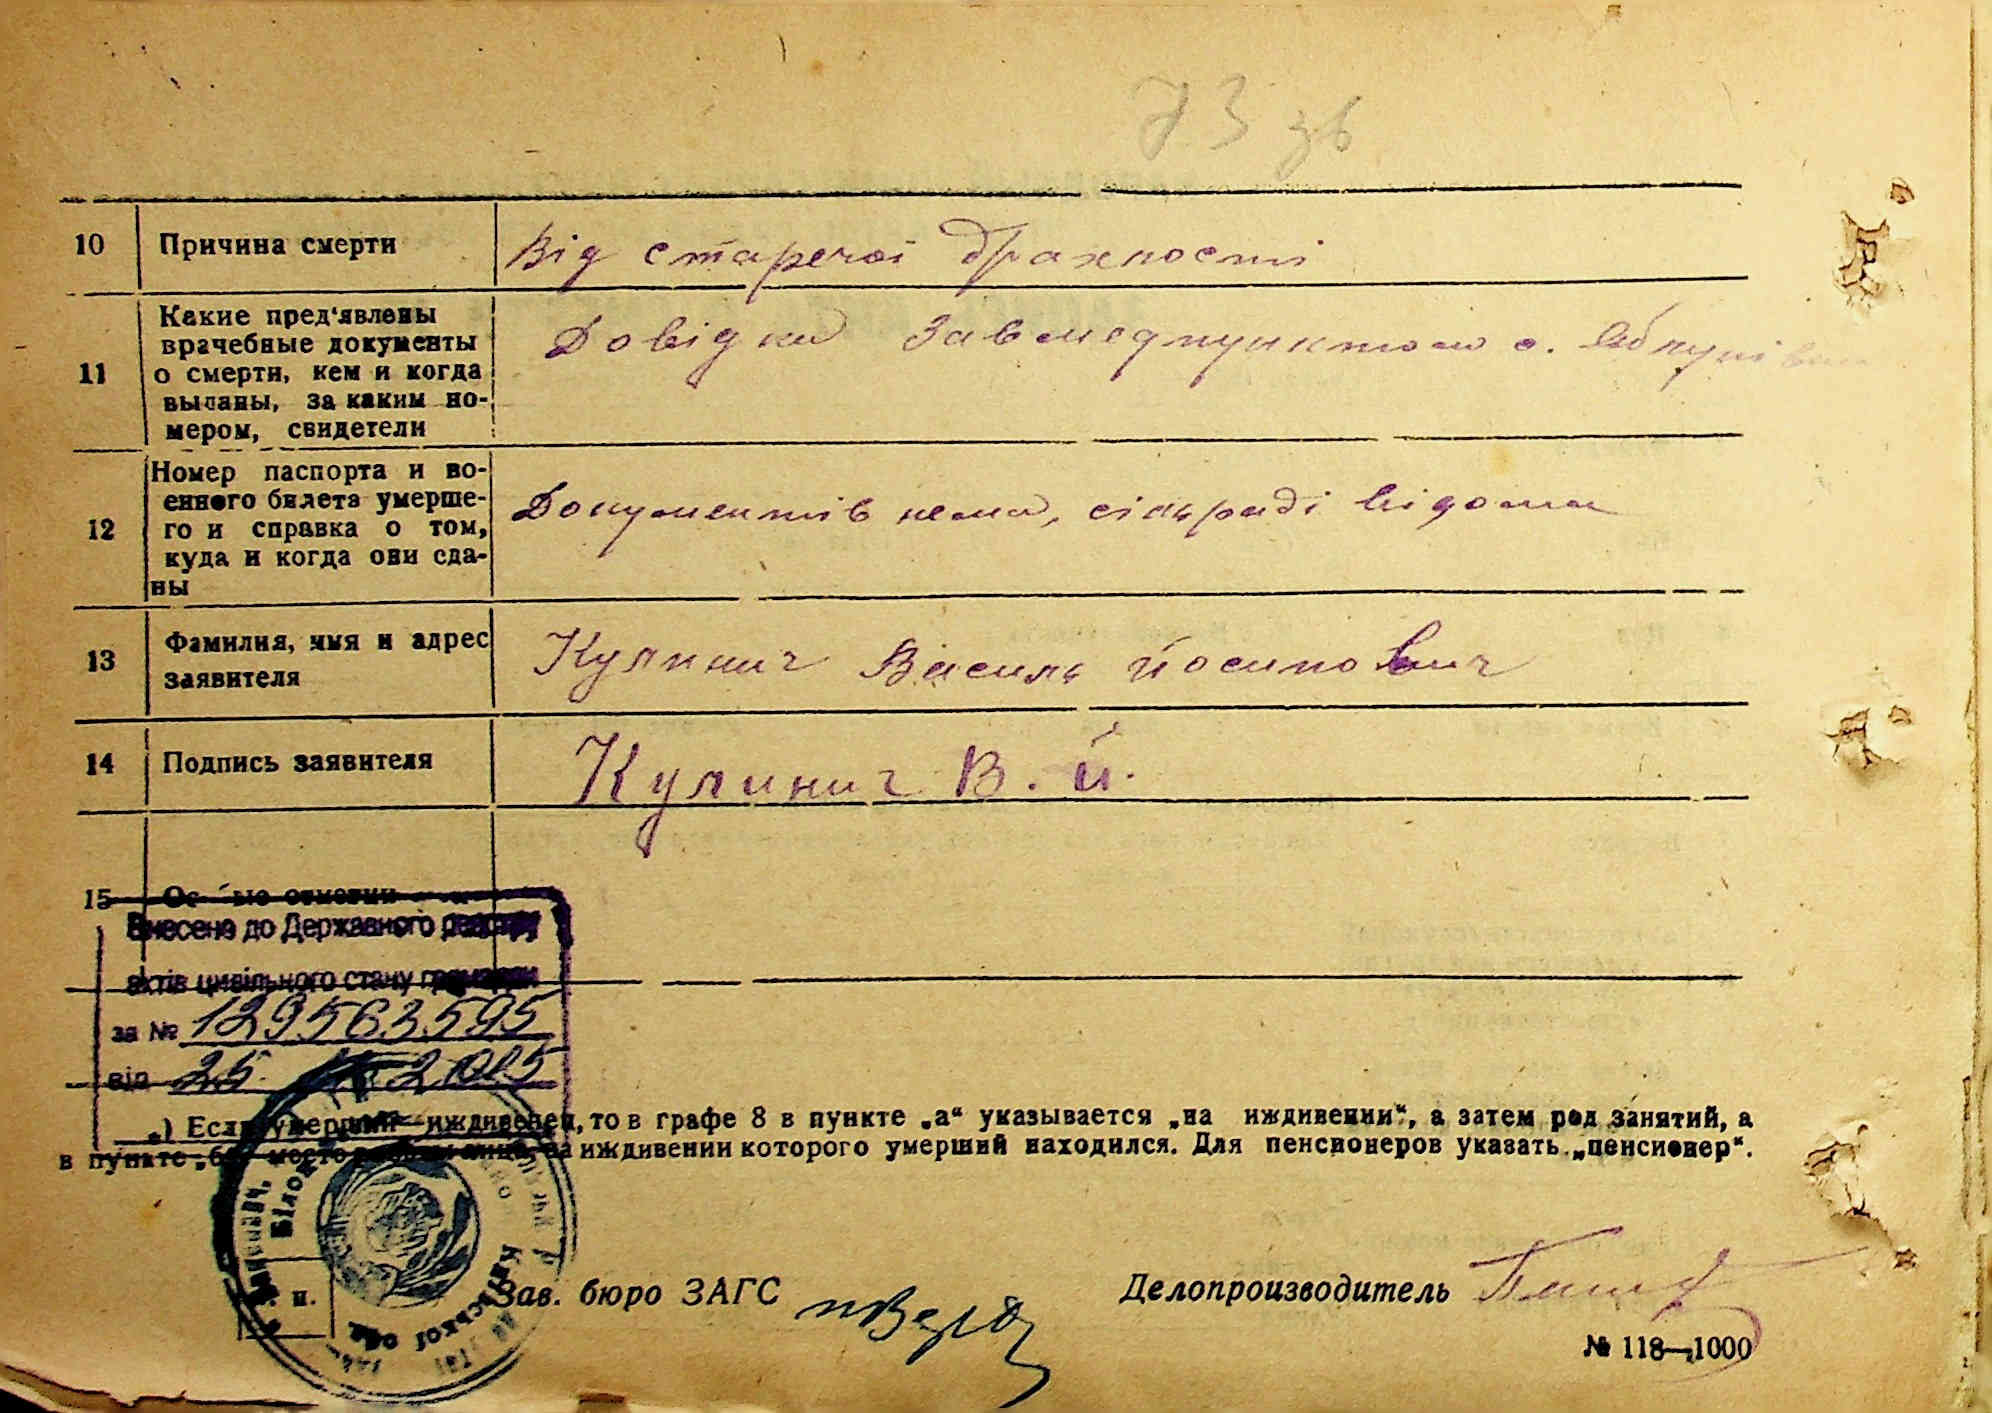 73 зв
10 Причина смерти Від старечої драхлості
11 Какие пред'явлены врачебные документы о смерти, кем и когда выданы, за каким номером, свидетели Довідка Завмедпунктом с.
12 Номер паспорта и во-
енного билета умерше-
го и справка о том,
куда и когда они сда-
ны Документів нема, сільраді відома
13 Фамилия, имя и адрес
заявителя Кулинич Василь Йосипович
14 Подпись заявителя Кулинич В. Й.
15 Ос ые отметки
Внесено до Державного реєстру
актів цивільного стану громадян
за № 129563595
від 25. 2015
.) Если умерший—иждивенец, то в графе 8 в пункте „а“ указывается „на иждивении“, а затем род занятий, а
в пункте „б“ место работы лица, на иждивении которого умерший находился. Для пенсионеров указать „пенсионер“.
Зав. бюро ЗАГС
Делопроизводитель
№ 118—1000